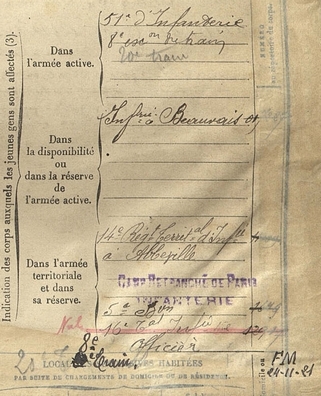 Indication des corps auxquels les jeunes gens sont affectés (3).
Dans
l'armée active.
51e d'Infanterie
8e escon du train
20e train
Dans
la disponibilité
ou
dans la réserve
de
l'armée active.
Infrie à Beauvais
Dans l'armée
territoriale
et dans
sa réserve.
14e Régt Territal d'Infie
à Abbeville
CAMP RETRANCHÉ DE PARIS
INFANTERIE
5e Bon
16e
8e
Train
LOCALITÉS HABITÉES
PAR SUITE DE CHANGEMENTS DE DOMICILE OU DE RÉSIDENCE.
NUMÉRO
FM
24-11-21